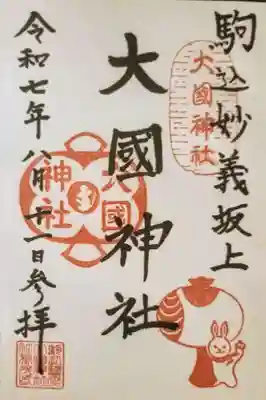 駒込妙義坂上
大國神社
大國神社
大國神社
令和七年八月廿一日参拝